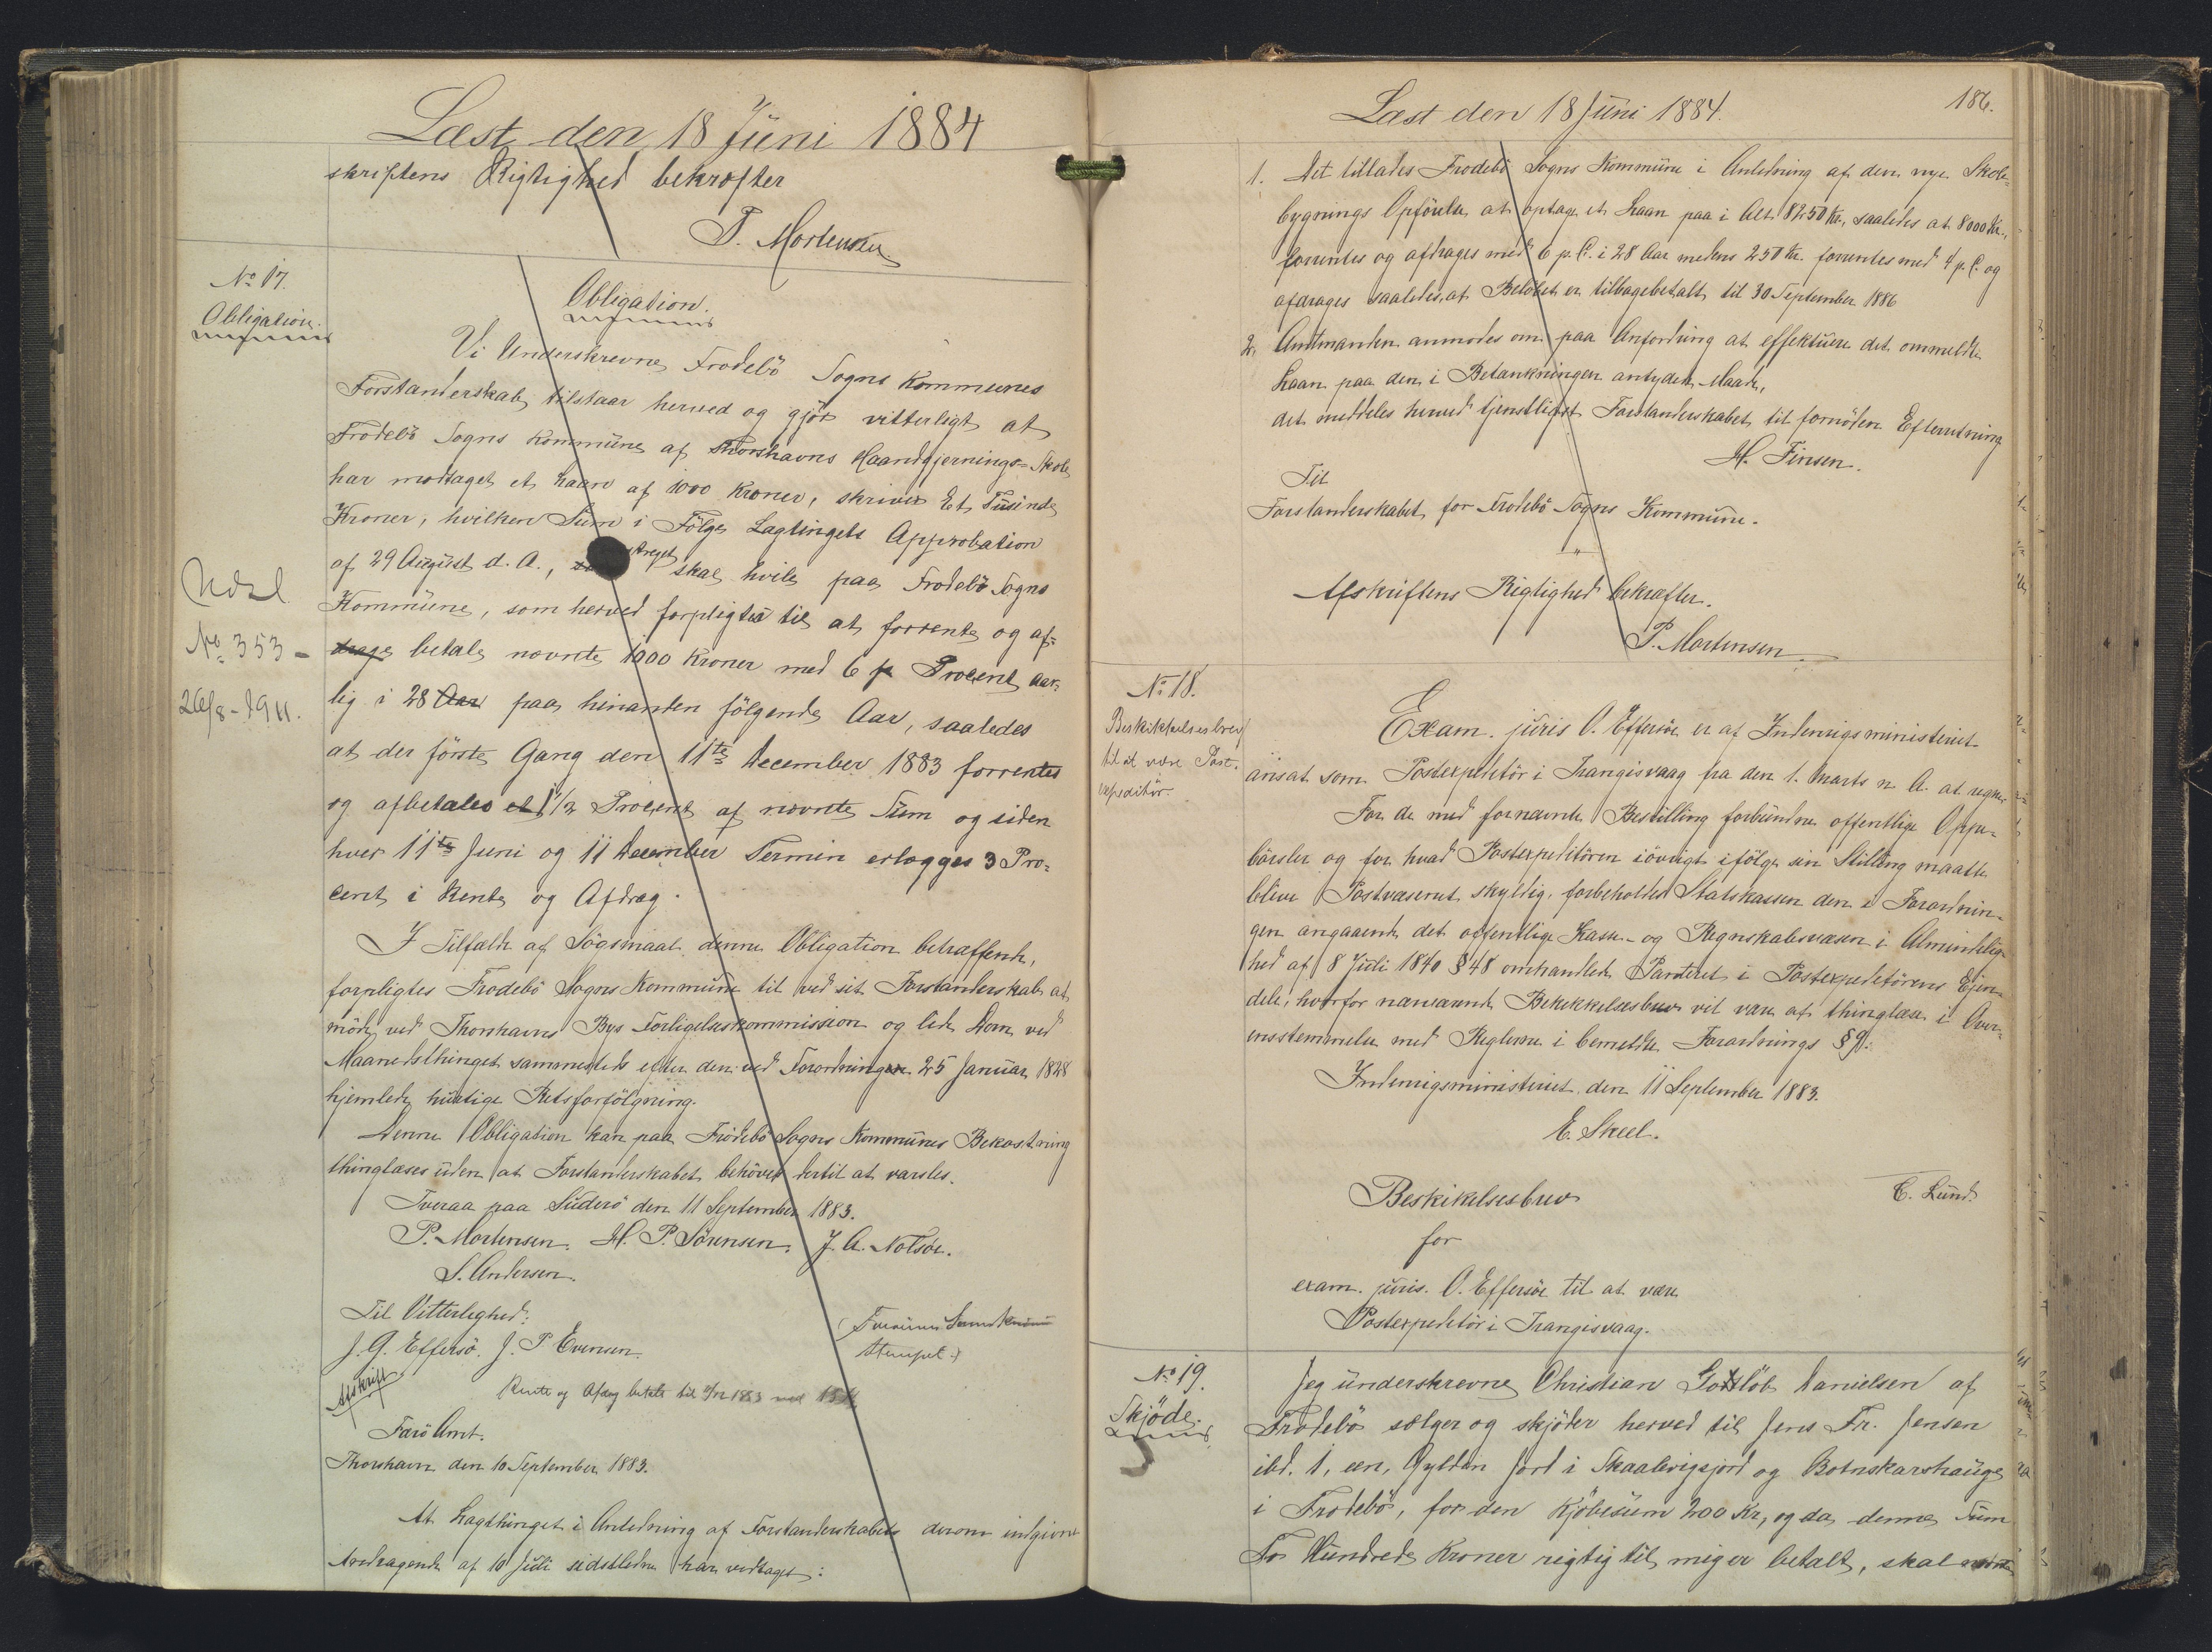 Læst den 18 Juni 1884
skriftens Rigtighed bekræfter
P. Mortensen
No 17.
Obligation.
Obligation.
Vi Underskrevne Frodebö Sogns Kommunes
Forstanderskab tilstaar herved og gjör vitterligt at
Frodebö Sogns Kommune af Thorshavns Haandgjernings-Skole
har modtaget et Laan af 1000 Kroner, skriver Et Tusinde
Kroner, hvilken Sum i Fölge Lagtingets Approbation
af 29 August d. A., skal hvile paa Frodebö Sogns
Kommune, som herved forpligtes til at forrente og af-
drage betale nævnte 1000 Kroner med 6 p Procent aar-
lig i 28 Aar paa hinanden fölgende Aar, saaledes
at der förste Gang den 11te December 1883 forrentes
og afbetales et 1 1/2 Procent af nævnte Sum og siden
hver 11te Juni og 11 December Termin erlægges 3 Pro-
cent i Rente og Afdrag.
I Tilfælde af Sögsmaal denne Obligation betræffende,
forpligtes Frodebö Sogns Kommune til ved sit Forstanderskab at
möde ved Thorshavns Bys Forligelseskommission og lide Dom ved
Maanedsthinget sammesteds efter den ved Forordningen 25 Januar 1828
hjemlede hurtige Retsforfölgning.
Denne Obligation kan paa Frödebö Sogns Kommunes Bekostning
thinglæses uden at Forstanderskabet behöver dertil at varsles.
Tveraa paa Suderö den 11 September 1883.
P. Mortensen. H. P. Sörensen. J. A. Nolsöe.
S. Andersen.
Til Vitterlighed:
J. G. Effersö. J. P Evensen.
Stempel.)
Afskrift
Rente og Afdrag betalt til 11/12 1883 med 15 Kr
Færö Amt.
Thorshavn den 10 September 1883.
At Lagthinget i Anledning af Forstanderskabets derom indgivne
Andragende af 10 Juli sidstleden har vedtaget:
Udsl
No 353 -
26/8 - 1911.
Læst den 18 Juni 1884.
186.
1. Det tillades Frodebö Sogns Kommune i Anledning af den nye Skole-
bygnings Opförelse at optage et Laan paa i Alt 8250 Kr., saaledes at 8000 Kr.,
forrentes og afdrages med 6 p. C. i 28 Aar medens 250 Kr. forrentes med 4 p. C. og
afdrages saaledes at Belöbet er tilbagebetalt til 30 September 1886
2. Amtmanden anmodes om paa Anfordring at effektuere det ommeldte
Laan paa den i Betænkningen antydede Maade,
det meddeles herved tjenstligst Forstanderskabet til fornöden Efterretning
H. Finsen.
Til
Forstanderskabet for Frodebö Sogns Kommune.
Afskriftens Rigtighed bekræfter.
P. Mortensen.
No 18.
Beskikkelsesbrev
til at være Post-
expeditör
Exam. juris O. Effersöe er af Indenrigsministeriet
ansat som Postexpeditör i Trangisvaag fra den 1. Marts n. A. at regne
For de med fornævnte Bestilling forbundne offentlige Oppe-
börsler og for hvad Postexpeditören iövrigt ifölge sin Stilling maatte
blive Postvæsenet skyldig, forbeholdes Statskassen den i Forordnin-
gen angaaende det offentlige Kasse- og Regnskabsvæsen i Almindelig-
hed af 8 Juli 1840 § 48 omhandlede Panteret i Postexpeditörens Ejen-
dele, hvorfor nærværende Bekikkelsesbrev vil være at thinglæse i Over-
ensstemmelse med Reglerne i bemeldte Forordnings § 9.
Indenrigsministeriet den 11 September 1883.
E. Skeel.
C. Lund.
Beskikelsesbrev
for
exam. juris. O. Effersöe til at være
Postexpeditör i Trangisvaag.
No 19.
Skjöde.
Jeg underskrevne Christian Gottlöb Danielsen af
Frodebö sælger og skjöder herved til Jens Fr. Jensen
ibd. 1, een, Gylden Jord i Skaalevigsjord og Botnskarshauge
i Frodebö, for den Kjöbesum 200 Kr, og da denne Sum
To Hundrede Kroner rigtig til mig er betalt, skal nævnte